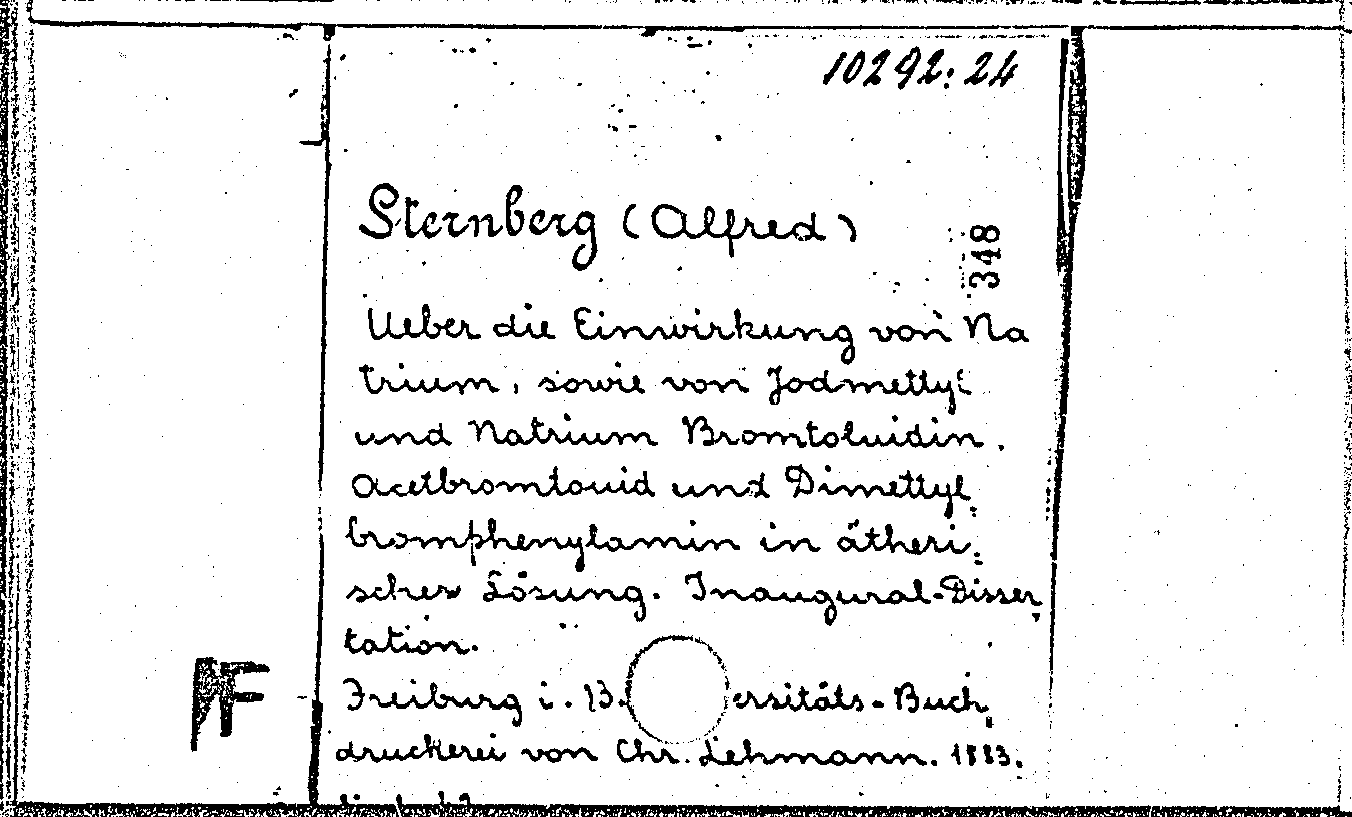 10292:24
Sternberg (Alfred)
348
Ueber die Einwirkung von Na
trium, sowie von Jodmettyl
und Natrium Bromtoluidin.
Acetbromtouid und Dimettyl
bromphenylamin in ätheri
scher Lösung. Inaugural-Disser
tation.
Freiburg i. B. ersitäts-Buch
druckerei von Chr. Lehmann. 1883.